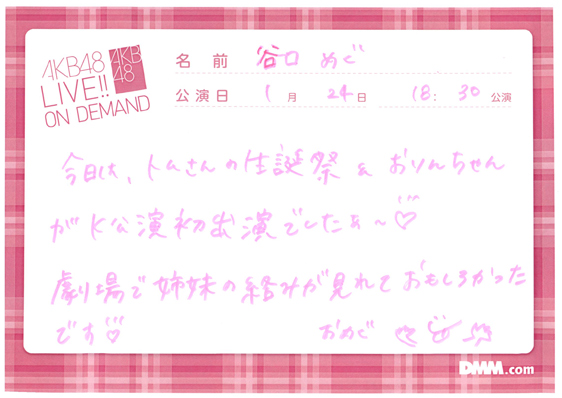 AKB48
LIVE!!
ON DEMAND
AKB
48
名前 谷口 めぐ
公演日 1月 24日 18:30公演
今日は、トムさんの生誕祭& おりんちゃん
がK公演初出演でしたぁ〜♡
劇場で姉妹の絡みが見れておもしろかった
です♡ おめぐ
DMM.com